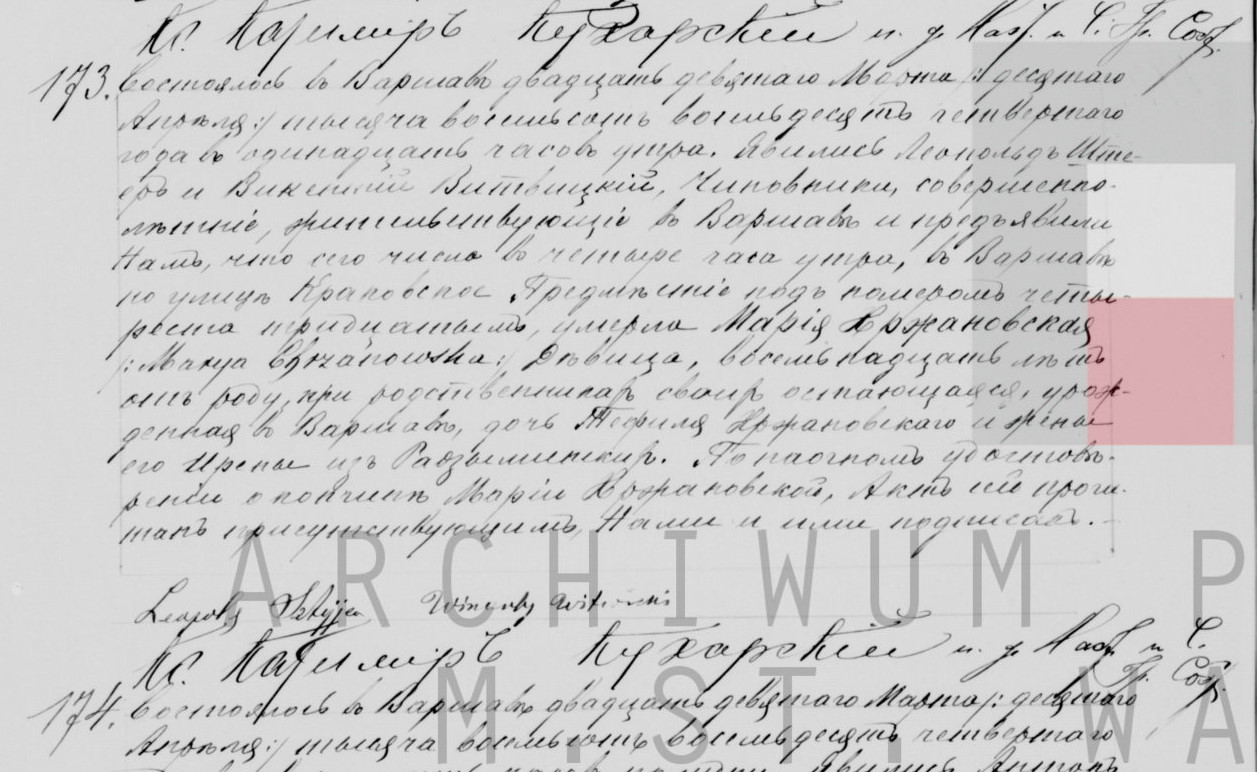 Кс. Казимиръ Кухарскій и. д. Наст. и Ч. Гр. Сост.
173. Состоялось въ Варшавѣ двадцать девятаго Марта /: десятаго
Апрѣля :/ тысяча восемьсотъ восемьдесятъ четвертаго
года въ одинадцать часовъ утра. Явились Леопольдъ Ште-
еръ и Викентій Витвицкій, Чиновники, совершенно-
лѣтніе, жительствующіе въ Варшавѣ и предъявили
Намъ, что сего числа въ четыре часа утра, въ Варшавѣ
по улицѣ Краковское Предмѣстіе подъ номеромъ четы-
реста тридцатымъ, умерла Марія Хржановская
/: Marya Chrzanowska :/ Дѣвица, восемьнадцать лѣтъ
отъ роду, при родственникахъ своихъ остающаяся, урож-
денная въ Варшавѣ, дочь Теофиля Хржановскаго и жены
его Ирены изъ Радзыминскихъ. По наочномъ удостовѣ-
реніи о кончинѣ Маріи Хржановской, Актъ сей прочи-
танъ присутствующимъ, Нами и ими подписанъ. -
Leopold
Кс. Казимиръ Кухарскій и. д. Наст. и Ч.
Гр. Сост.
174. Состоялось въ Варшавѣ двадцать девятаго Марта /: десятаго
Апрѣля :/ тысяча восемьсотъ восемьдесятъ четвертаго
Явились Антонъ
ARCHIWUM P
M. ST. WA